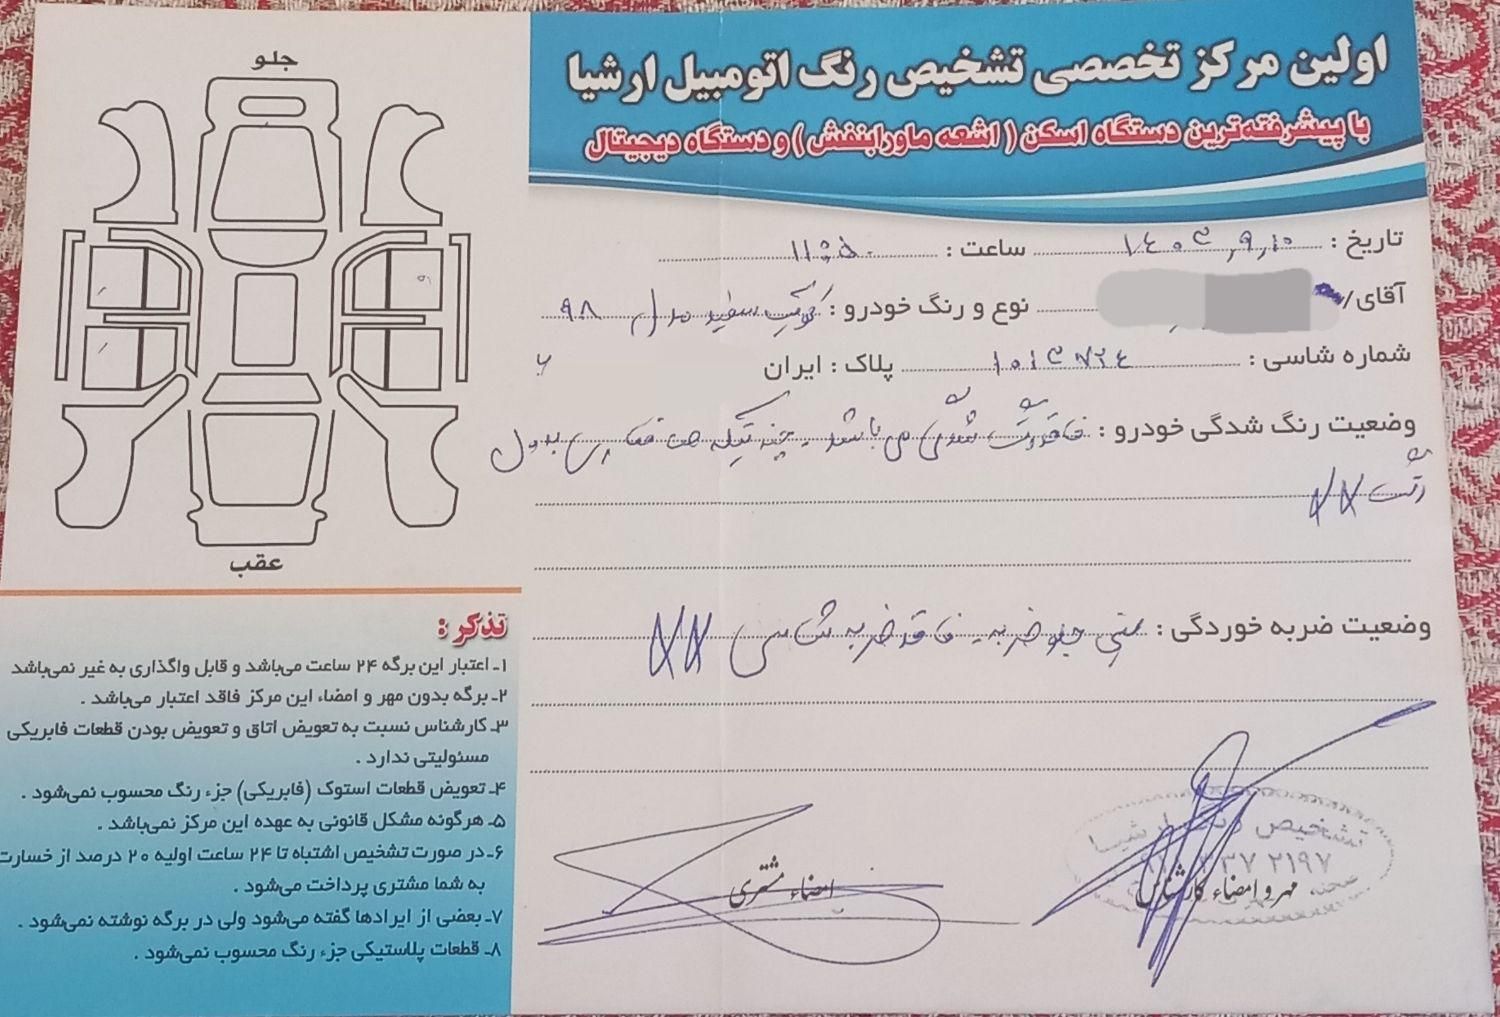 اولین مرکز تخصصی تشخیص رنگ اتومبیل ارشیا
با پیشرفته‌ترین دستگاه اسکن ( اشعه ماورابنفش ) و دستگاه دیجیتال
تاریخ : ۱۴۰۳,۹,۱۰ ساعت : ۱۱:۵۰
آقای/ نوع و رنگ خودرو : کوییک سفید مدل ۹۸
شماره شاسی : ۱۰۱۳۷۲۴ پلاک : ایران
وضعیت رنگ شدگی خودرو : فاقد رنگ شدگی می باشد - چند تیکه بدون
رنگ
وضعیت ضربه خوردگی : سینی جلو ضربه - فاقد ضربه شاسی
مهر و امضاء کارشناس
امضاء مشتری
تشخیص رنگ ارشیا
جلو
عقب
تذکر :
۱ـ اعتبار این برگه ۲۴ ساعت می‌باشد و قابل واگذاری به غیر نمی‌باشد
۲ـ برگه بدون مهر و امضاء این مرکز فاقد اعتبار می‌باشد .
۳ـ کارشناس نسبت به تعویض اتاق و تعویض بودن قطعات فابریکی
مسئولیتی ندارد .
۴ـ تعویض قطعات استوک (فابریکی) جزء رنگ محسوب نمی‌شود .
۵ـ هرگونه مشکل قانونی به عهده این مرکز نمی‌باشد .
۶ـ در صورت تشخیص اشتباه تا ۲۴ ساعت اولیه ۲۰ درصد از خسارت
به شما مشتری پرداخت می‌شود .
۷ـ بعضی از ایرادها گفته می‌شود ولی در برگه نوشته نمی‌شود .
۸ـ قطعات پلاستیکی جزء رنگ محسوب نمی‌شود .